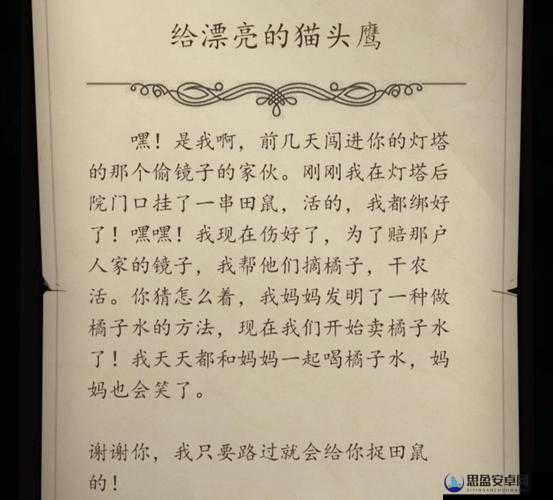 给漂亮的猫头鹰
嘿！是我啊，前几天闯进你的灯塔
的那个偷镜子的家伙。刚刚我在灯塔后
院门口挂了一串田鼠，活的，我都绑好
了！嘿嘿！我现在伤好了，为了赔那户
人家的镜子，我帮他们摘橘子，干农
活。你猜怎么着，我妈妈发明了一种做
橘子水的方法，现在我们开始卖橘子水
了！我天天都和妈妈一起喝橘子水，妈
妈也会笑了。
谢谢你，我只要路过就会给你捉田鼠
的！
思盈安卓网